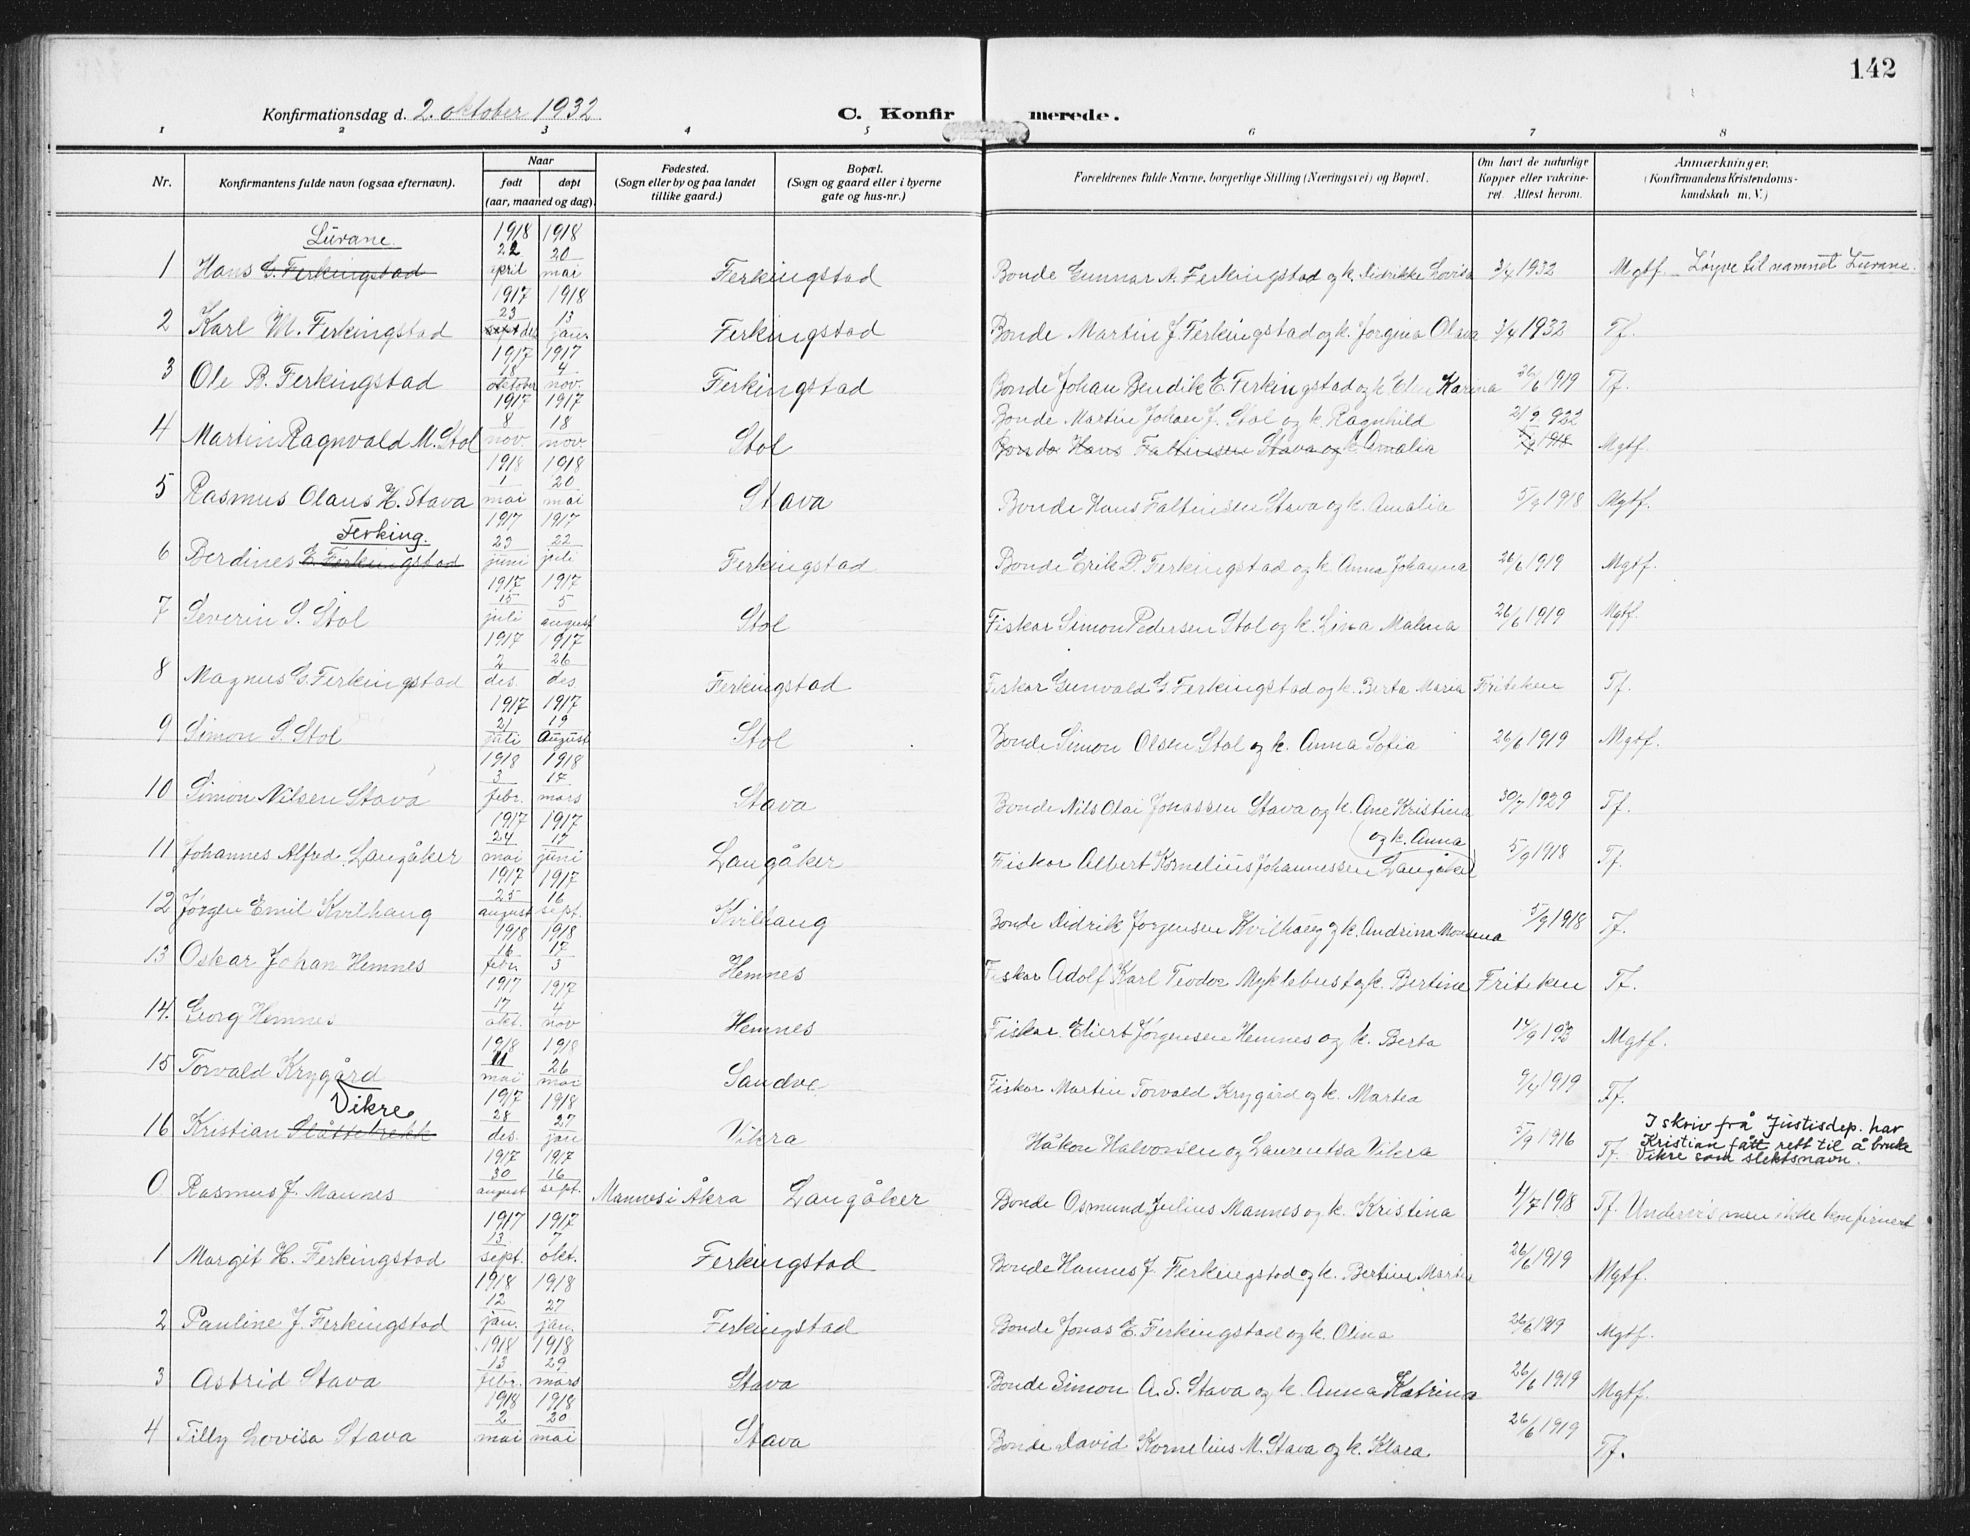 142
Konfirmationsdag d. 2. oktober 1932 C. Konfirmerede.
1 2 3 4 5 6 7 8
Nr. Konfirmantens fulde navn (ogsaa efternavn). Naar født døpt (aar, maaned og dag). Fødested. (Sogn eller by og paa landet tillike gaard.) Bopæl. (Sogn og gaard eller i byerne gate og hus-nr.) Forældrenes fulde Navne, borgerlige Stilling (Næringsvei) og Bopæl. Om havt de naturlige Kopper eller vakcineret. Attest herom. Anmærkninger. (Konfirmandens Kristendomskundskab m. V.)
Lurane.
1 Hans G. Ferkingstad 1918 22 april 1918 20 mai Ferkingstad Bonde Gunnar A. Ferkingstad og k. Didrikke Lovisa 3/4 1932 Mgtf. Løyve til namnet Lurane.
2 Karl M. Ferkingstad 1917 23 des 1918 13 jan. Ferkingstad Bonde Martin J. Ferkingstad og k. Jorgina Olava 3/4 1932 Tf.
3 Ole B. Ferkingstad 1917 18 oktober 1917 4 nov. Ferkingstad Bonde Johan Bendik E. Ferkingstad og k. Karina 26/6 1919 Tf.
Bonde Martin Johan J. Stol og k. Ragnhild 21/9 922
4 Martin Ragnvald M. Stol 1917 8 nov 1917 18 nov Stol Bonde Hans Faltinsen Stava og k. Amalia 1918 Mgtf.
5 Rasmus Olaus H. Stava 1918 1 mai 1918 20 mai Stava Bonde Hans Faltinsen Stava og k. Amalia 5/9 1918 Mgtf.
Ferking.
6 Berdines E. Ferkingstad 1917 23 juni 1917 22 juli Ferkingstad Bonde Erik P. Ferkingstad og k. Anna Johanna 26/6 1919 Mgtf.
7 Severin S. Stol 1917 15 juli 1917 5 august Stol Fiskar Simon Pedersen Stol og k. Lina Malena 26/6 1919 Mgtf.
8 Magnus G. Ferkingstad 1917 2 des. 1917 26 des Ferkingstad Fiskar Gunvald G Ferkingstad og k. Berta Maria Friteken Tf.
9 Simon S. Stol 1917 21 juli 1917 19 August Stol Bonde Simon Olsen Stol og k. Anna Sofia 26/6 1919 Mgtf.
10 Simon Nilsen Stava 1918 3 febr. 1918 17 mars Stava Bonde Nils Olai Jonassen Stava og k. Ane Kristina 30/7 1929 Tf.
og k. Anna
11 Johannes Alfred Langåker 1917 24 mai 1917 17 juni Langåker Fiskar Albert Kornelius Johannessen Langåker 5/9 1918 Tf.
12 Jørgen Emil Kvilhaug 1917 25 august 1917 16 sept. Kvilhaug Bonde Didrik Jørgensen Kvilhaug og k. Andrina Monsena 5/9 1918 Tf.
13 Oskar Johan Hemnes 1918 16 febr. 1918 17 3 Hemnes Fiskar Adolf Karl Teodor Myklebust og k. Bertine Friteken Tf.
14. Georg Hemnes 1917 17 okt. 1917 4 nov Hemnes Fiskar Eliert Jørgensen Hemnes og k. Berta Mgtf.
15 Torvald Krygård 1918 11 mai 1918 26 mai Sandve Fiskar Martin Torvald Krygård og k. Martea 9/4 1919 Tf.
Vikre
16 Kristian Slåttebrekk 1917 28 des. 1918 27 jan Vikra Håkon Halvorsen og Laurentsa Vikra 5/9 1916 Tf. I skriv frå Justisdep. har
Kristian fått rett til å bruke
Vikre som slektsnavn.
0 Rasmus J. Mannes 1917 30 august 1917 16 sept. Mannes i Åkra Langåker Bonde Osmund Julius Mannes og k. Kristina 4/7 1918 Tf. Undervis men ikke konfirmert
1 Margit H. Ferkingstad 1917 13 sept. 1917 7 okt. Ferkingstad Bonde Hannes J. Ferkingstad og k. Bertine Marta 26/6 1919 Mgtf.
2 Pauline J. Ferkingstad 1918 12 jan. 1918 27 jan. Ferkingstad Bonde Jonas E. Ferkingstad og k. Olina 26/6 1919 Mgtf.
3 Astrid Stava 1918 13 febr. 1918 29 mars Stava Bonde Simon A. S. Stava og k. Anna Katrina 26/6 1919 Mgtf.
4 Tilly Lovisa Stava 1918 2 mai 1918 20 mai Stava Bonde David Kornelius M. Stava og k. Klara 26/6 1919 Tf.